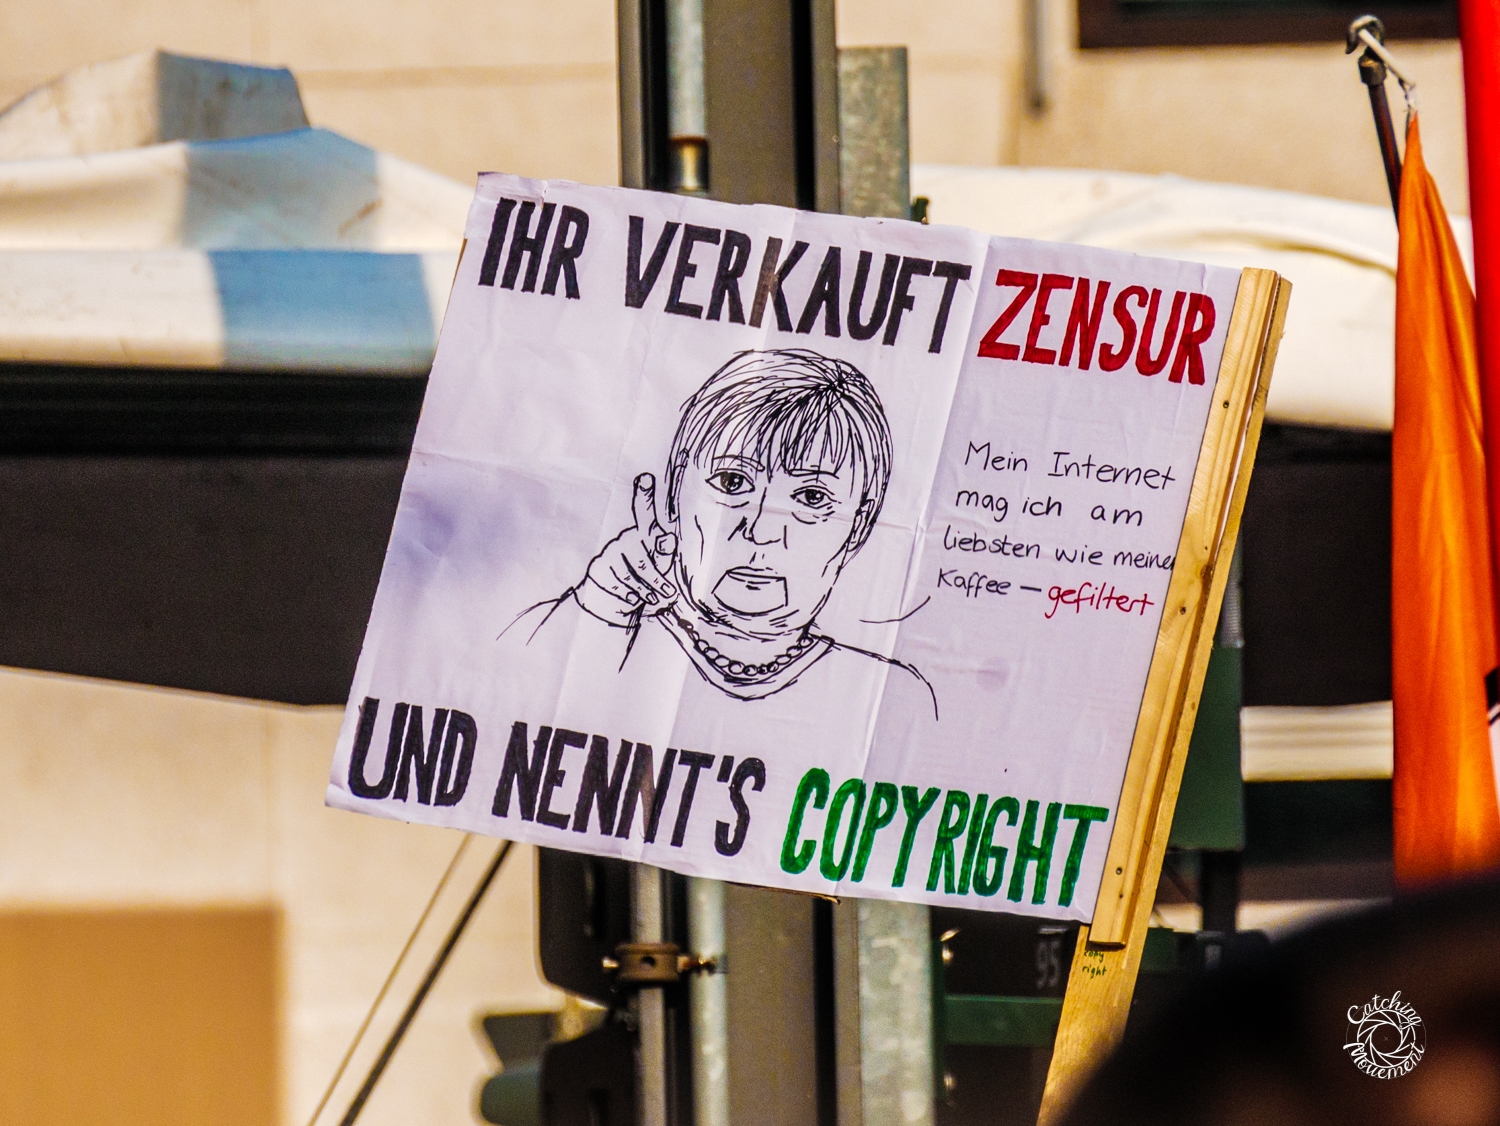 IHR VERKAUFT ZENSUR
Mein Internet
mag ich am
liebsten wie meinen
Kaffee – gefiltert
UND NENNT'S COPYRIGHT
copy
right
95
Catching
Movement